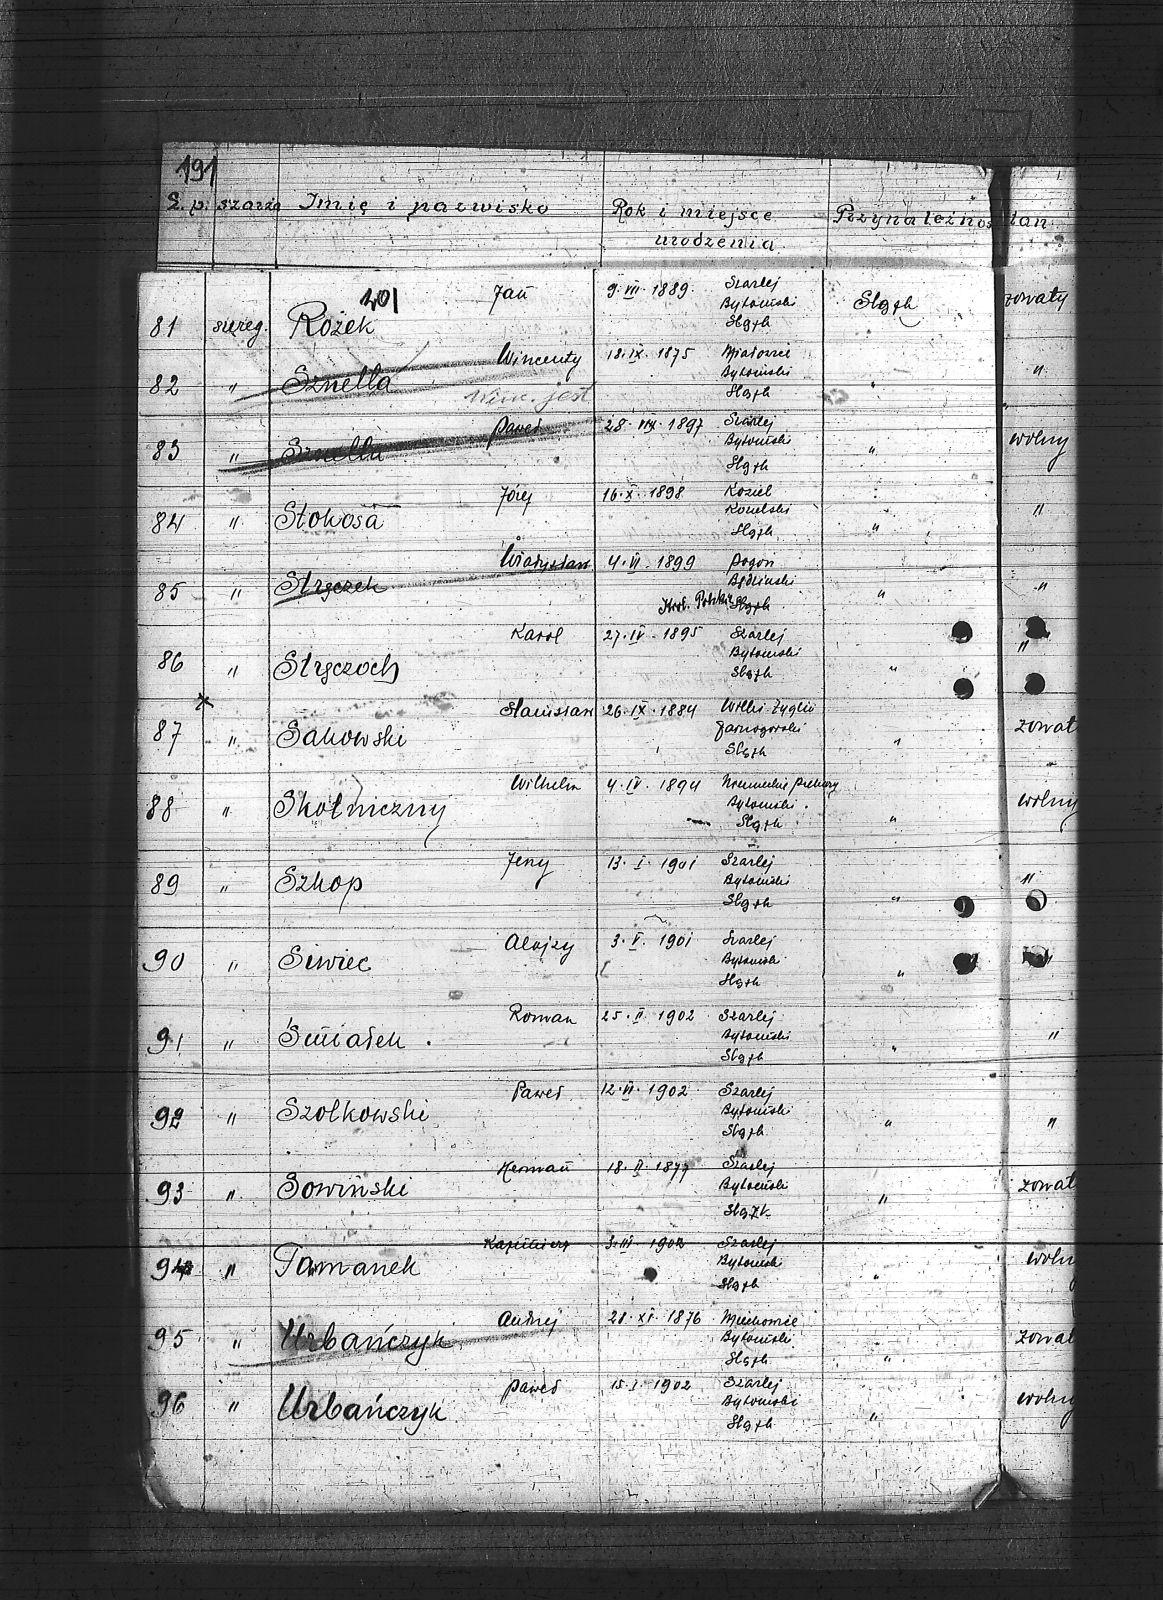 191
L.p. szarża Imię i nazwisko Rok i miejsce urodzenia Przynależnoś tan
101
81 szereg. Rożek Jan 9.VII.1889. Szarlej Bytomski Śląsk Śląsk zonaty
82 " Sznella Wincenty 18.IX.1875 Bytomski Śląsk " "
jest
83 " Sznella Paweł 28.VIII.1897 Szarlej Bytomski Śląsk " wolny
84 " Stokosa Józef 16.X.1898 Koziel Kozielski Śląsk " "
85 " Stryczek Władysław 4.VI.1899 Pogoń Będziński Król. Polskie Śląsk " "
86 " Stryczoch Karol 27.IV.1895 Szarlej Bytomski Śląsk " "
x
87 " Sakowski Stanisław 26.IX.1884 Żyglin Tarnogórski Śląsk " zonat
88 " Skotniczny Wilhelm 4.IV.1894 Niemieckie Piekary Bytomski. Śląsk " wolny
89 " Szkop Jerzy 13.I.1901 Szarlej Bytomski Śląsk " "
90 " Siwiec Alojzy 3.V.1901 Szarlej Bytomski Śląsk " "
91 " Śmiałek. Roman 25.II.1902 Szarlej Bytomski Śląsk " "
92 " Szołkowski Paweł 12.VI.1902 Szarlej Bytomski Śląsk " "
93 " Sowiński Herman 18.II.1877 Szarlej Bytomski Śląsk " zonat
94 " Tomanek Kazimierz 3.III.1902 Szarlej Bytomski Śląsk " wolny
95 " Urbańczyk Andrzej 28.XI.1876 Bytomski Śląsk " zonat
96 " Urbańczyk Paweł 15.I.1902 Szarlej Bytomski Śląsk " wolny